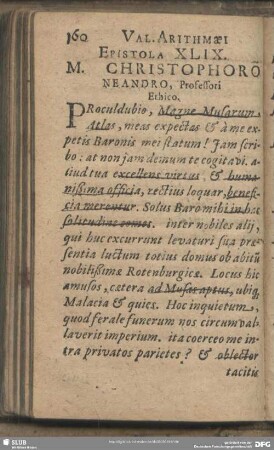 160 VAL. ARITHMÆI
EPISTOLA XLIX.
M. CHRISTOPHORÕ
NEANDRO, Professori
Ethico.
PRoculdubio, Magne Musarum
Atlas, meas expectas & à me ex-
petis Baronis mei statum! Jam scri-
bo: at non jam demum te cogitavi. a-
liud tua excellens virtus & huma-
nißima officia, rectius loquar, benefi-
cia merentur. Solus Baro mihi in hac
solitudine comes. inter nobiles alij,
qui huc excurrunt levaturi sua præ-
sentia luctum totius domus ob abitũ
nobilißimæ Rotenburgicæ. Locus hic
amusos, cætera ad Musas aptus, ubiq;
Malacia & quies. Hoc inquietum,
quod ferale funerum nos circumval-
laverit imperium. ita coerceo me in-
tra privatos parietes? & oblector
tacitis
SLUB
DFG